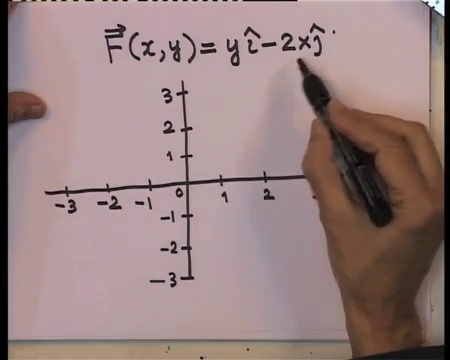 F⃗(x,y) = y î − 2x ĵ
3
2
1
-3 -2 -1 0 1 2
-1
-2
-3